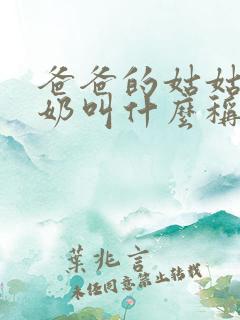 爸爸的姑姑
奶叫什麼稱
葉兆言
未经同意禁止转载